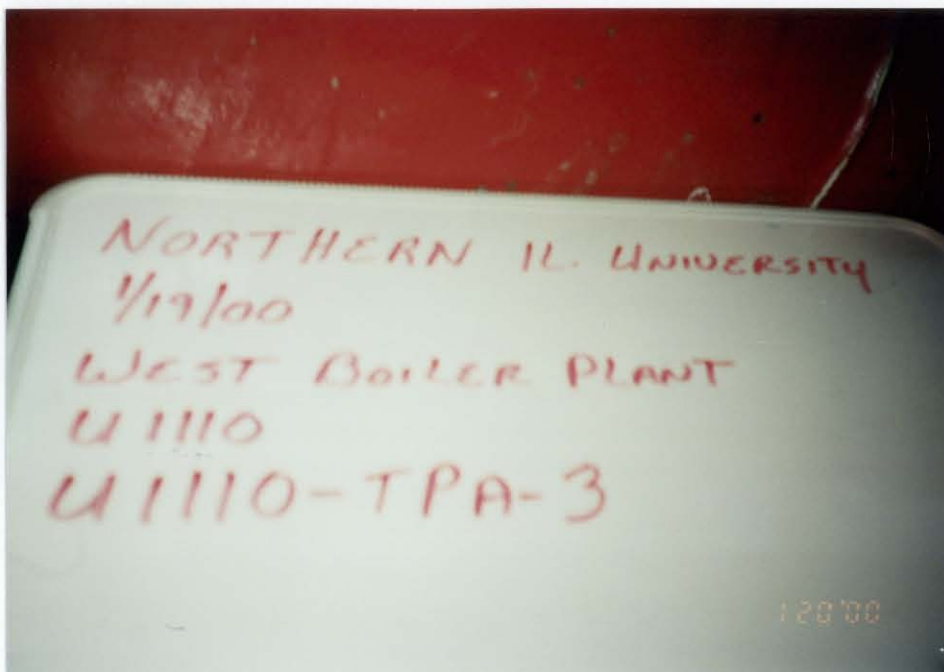 NORTHERN IL. UNIVERSITY
1/19/00
WEST BOILER PLANT
U1110
U1110-TPA-3
1 20 '00